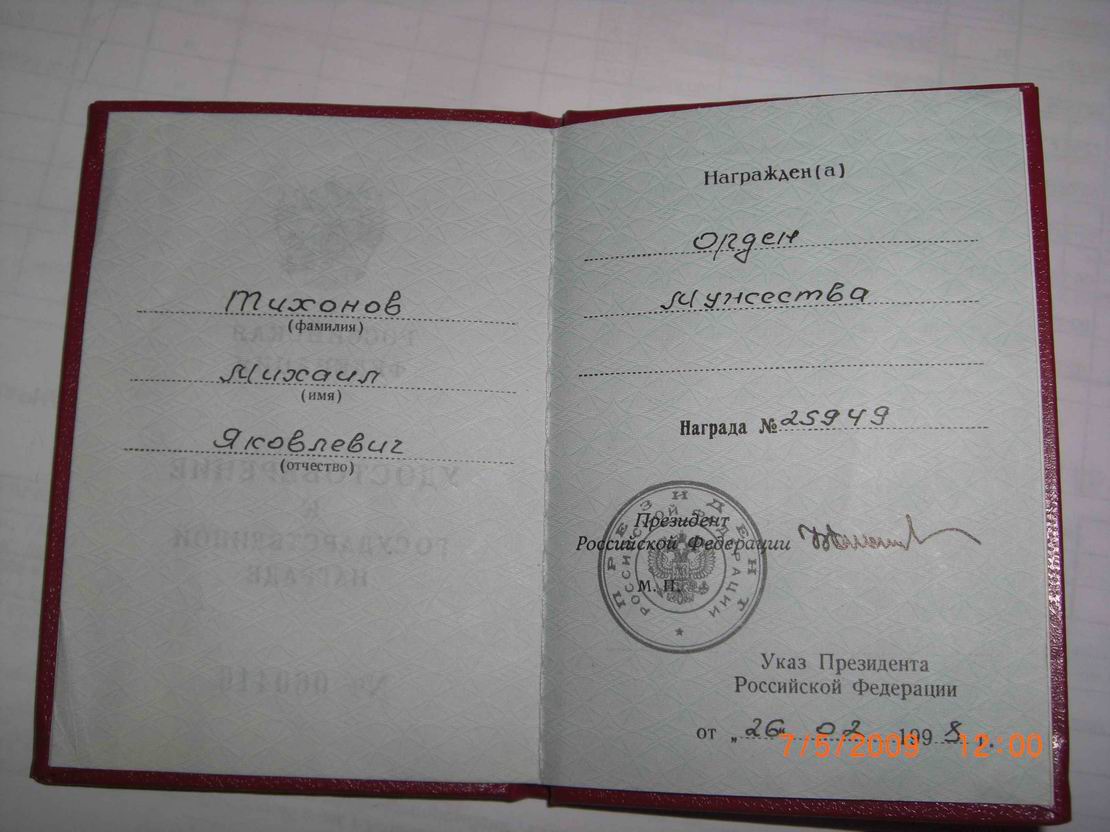 Тихонов
(фамилия)
Михаил
(имя)
Яковлевич
(отчество)
Награжден(а)
Орден
Мужества
Награда № 25949
Президент
Российской Федерации
М. П.
ПРЕЗИДЕНТ
РОССИЙСКОЙ ФЕДЕРАЦИИ
Указ Президента
Российской Федерации
от „26“ 02 1998 г.
7/5/2009 12:00